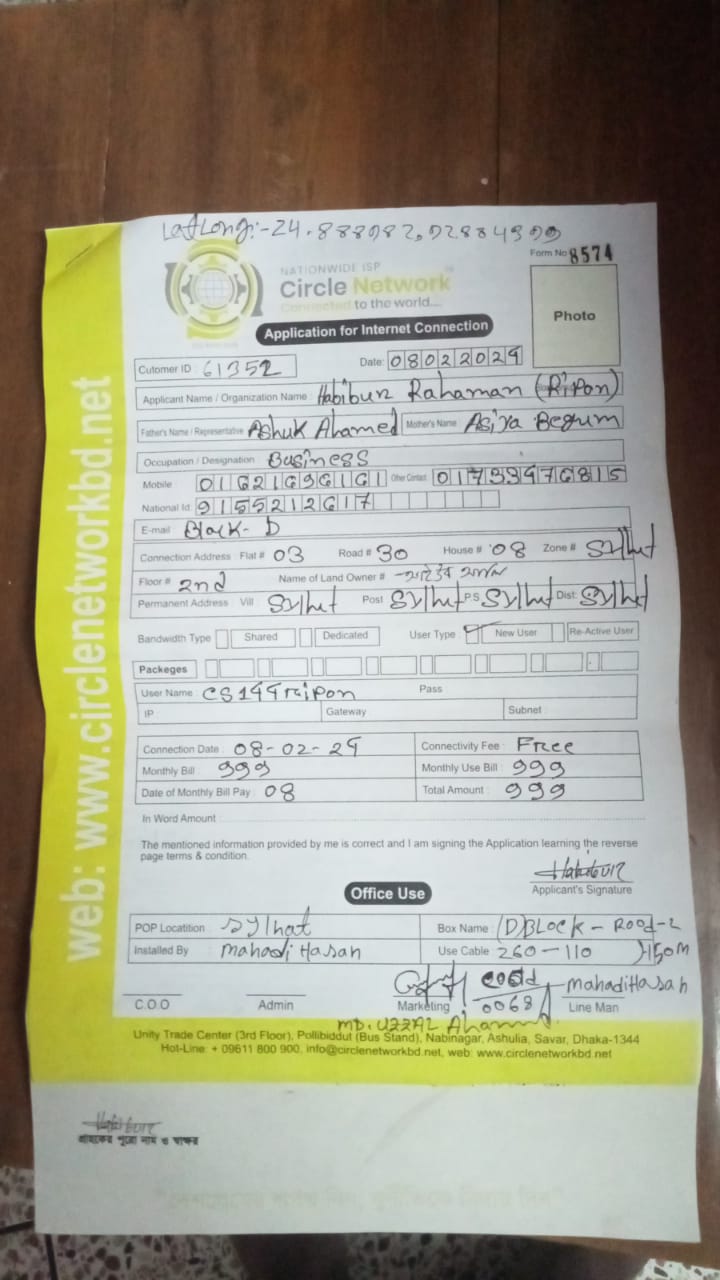 LatLong:- 24.888982, 92884999
Form No 8574
NATIONWIDE ISP
Circle Network
Connected to the world....
Photo
Application for Internet Connection
Cutomer ID : 61352 Date: 08022024
Applicant Name / Organization Name : Habibur Rahaman (Ripon)
Father's Name / Representative Ashuk Ahamed Mother's Name Asiya Begum
Occupation / Designation Business
Mobile 01621696161 Other Contact 01733476815
National Id 9155212617
E-mail Block-D
Connection Address Flat # 03 Road # 30 House # 08 Zone # Sylhet
Floor # 2nd Name of Land Owner #
Permanent Address Vill Sylhet Post Sylhet P.S Sylhet Dist: Sylhet
Bandwidth Type Shared Dedicated User Type New User Re-Active User
Packeges
User Name : CS144ripon Pass
IP Gateway Subnet
Connection Date : 08-02-24 Connectivity Fee : Free
Monthly Bill : 999 Monthly Use Bill : 999
Date of Monthly Bill Pay : 08 Total Amount : 999
In Word Amount :
The mentioned information provided by me is correct and I am signing the Application learning the reverse
page terms & condition.
Habibur
Applicant's Signature
Office Use
POP Locatition : Sylhat Box Name : (D)BLOCK - Rood-2
Installed By Mahadi Hasan Use Cable 260-110 150M
0068 Mahadi Hasan
C.O.O Admin Marketing Line Man
MD. UZZAL Ahamed
Unity Trade Center (3rd Floor), Pollibiddut (Bus Stand), Nabinagar, Ashulia, Savar, Dhaka-1344
Hot-Line: + 09611 800 900, info@circlenetworkbd.net, web: www.circlenetworkbd.net
web: www.circlenetworkbd.net
Habibur
গ্রাহকের পুরো নাম ও স্বাক্ষর